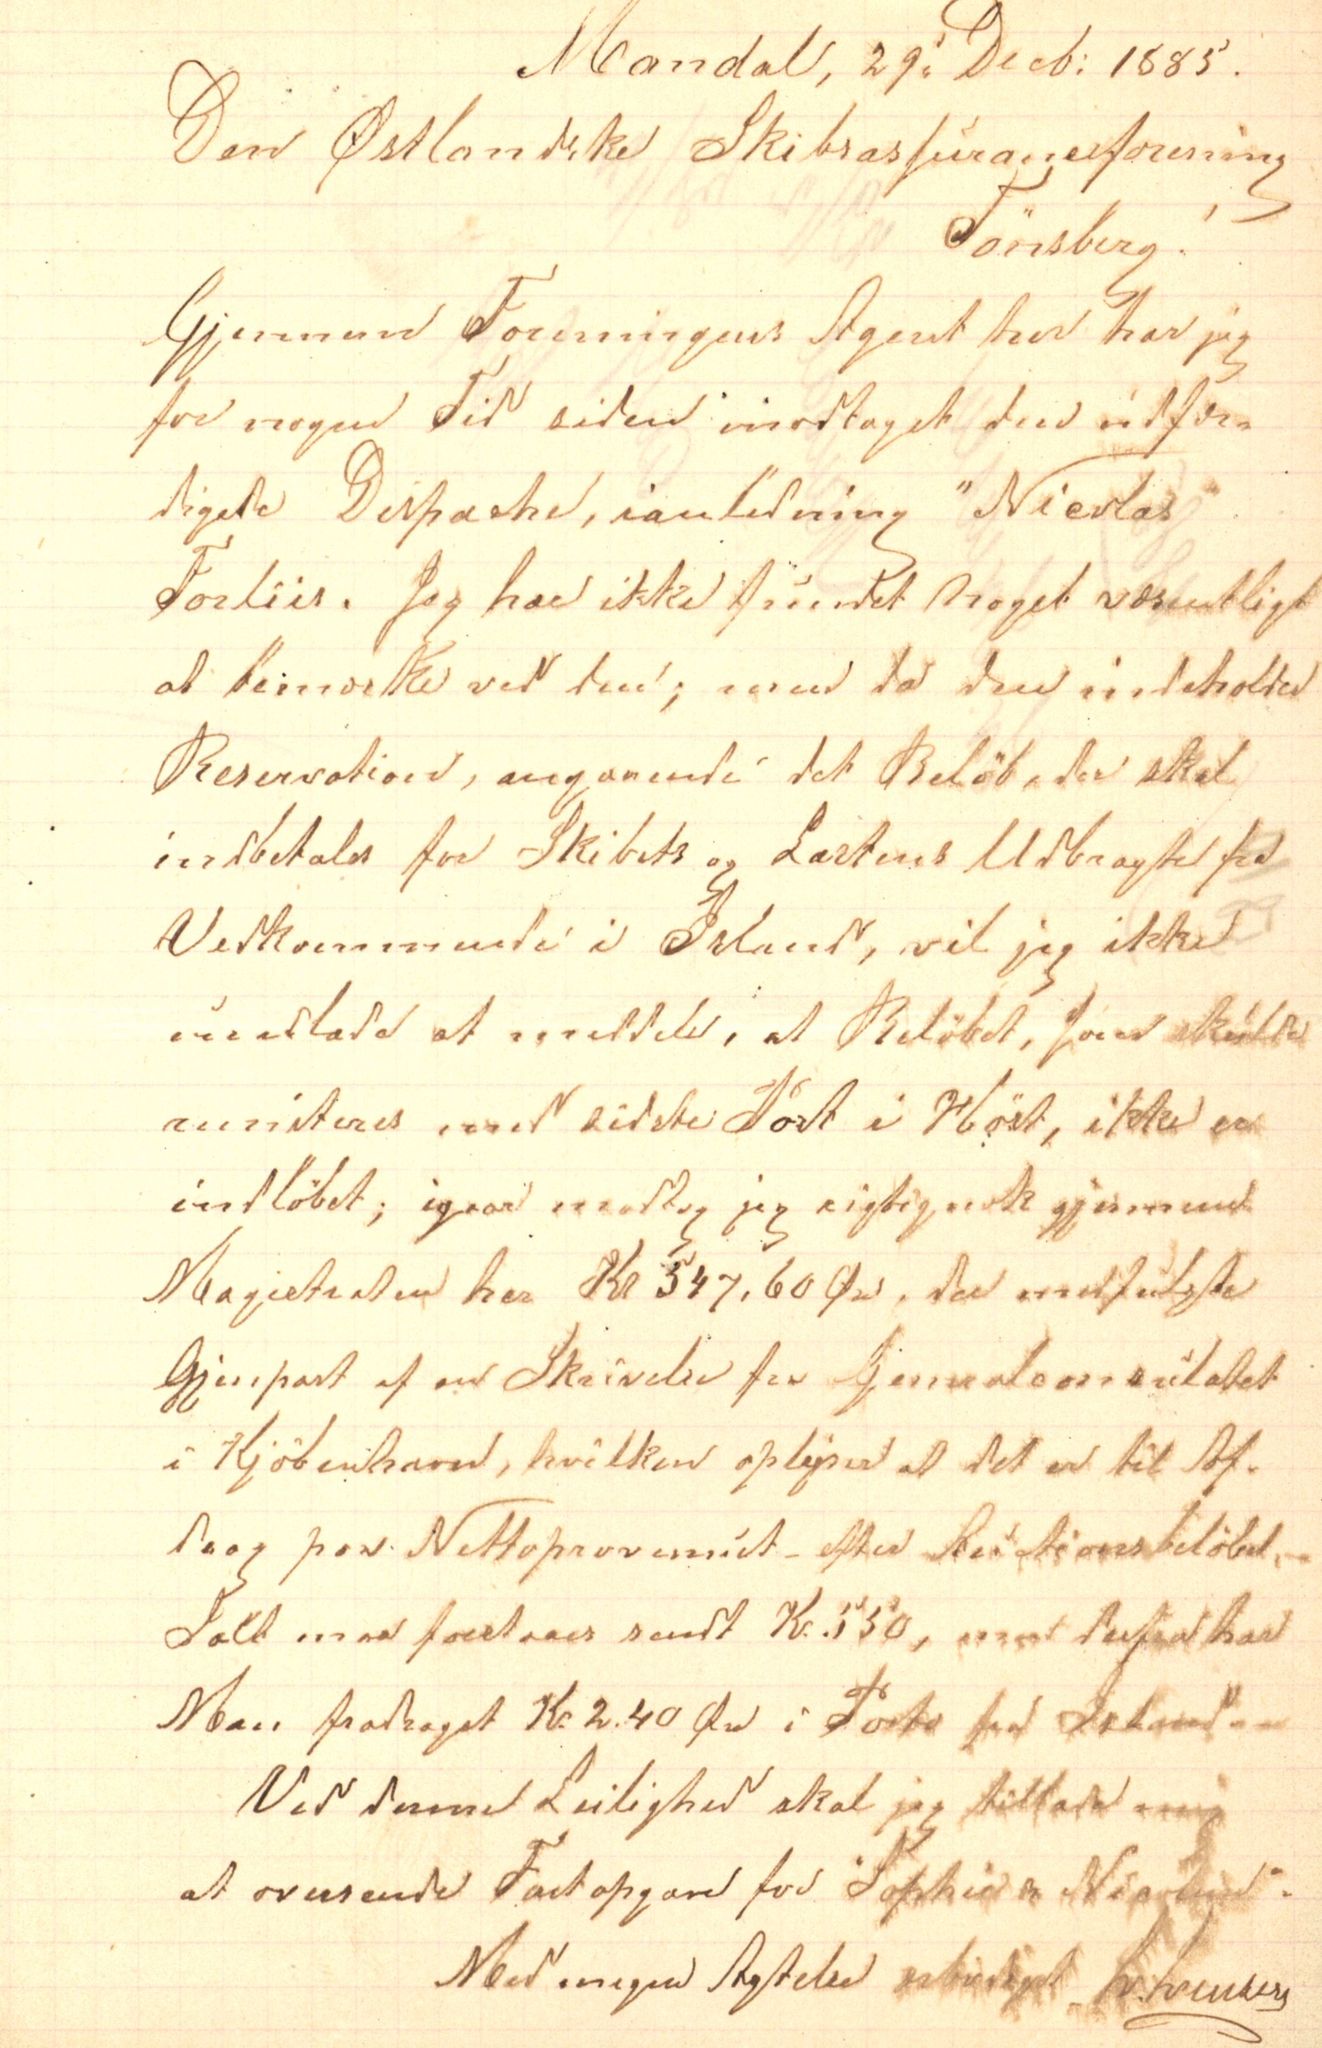 Mandal, 29: Decb: 1885.
Den Østlandske Skibsassuranceforening
Tönsberg!
Gjennem Foreningens Agent her har jeg
for nogen Tid siden modtaget den udfær-
digede Despache, ianledning "Nicolas"
Forliis. Jeg har ikke fundet noget væsentligt
at bemærke ved den; men da den indeholder
Reservation, angaaende det Belöb, der skal
indbetales for Skibets og Lastens Udbragte fra
Vedkommende i Island, vil jeg ikke
undlade at meddele, at Belöbet, som skulde
remiteres med sidste Post i Höst, ikke er
indlöbet; igaar modtog jeg rigtignok gjennem
Magistraten her Kr 547,60 Øre, der medfulgte
Gjenpart af en Skrivelse fra Generalconsulatet
i Kjöbenhavn, hvilken oplyser at det er til Af-
drag paa Nettoprovenuet efter Auctionsbelöbet.
Ialt maa forstaaes sendt Kr. 550, men derfra har
Man fradraget Kr 2.40 Øre i Porto fra Island
Ved denne Leilighed skal jeg tillade mig
at oversende Fartopgave for "Sophie"
Med megen Agtelse erbödigst